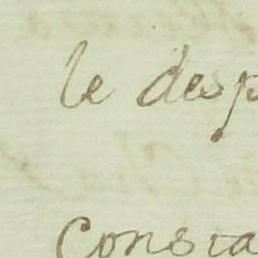 le desp
Consta